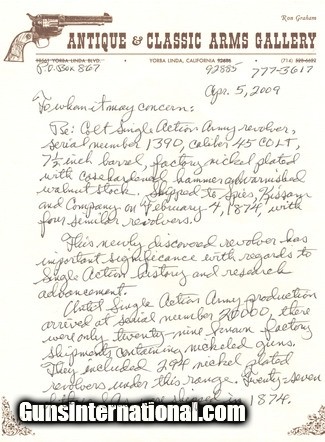 Ron Graham
ANTIQUE & CLASSIC ARMS GALLERY
YORBA LINDA BLVD. • YORBA LINDA, CALIFORNIA • (714)
P.O. Box 867 92885 777-3617
Apr. 5, 2009
To whom it may concern:
Re: Colt Single Action Army revolver,
serial number 1390, caliber 45 COLT,
7½ inch barrel, factory nickel plated
with casehardened hammer and varnished
walnut stock. Shipped to Spies, Kissam
and Company on February 4, 1874, with
four similar revolvers.
This newly discovered revolver has
important significance with regards to
Single Action history and research
advancement.
Until Single Action Army production
arrived at serial number 20000, there
were only twenty-nine known factory
shipments containing nickeled guns.
They included 294 nickel plated
revolvers under this range. Twenty seven
in 1874.
GunsInternational.com